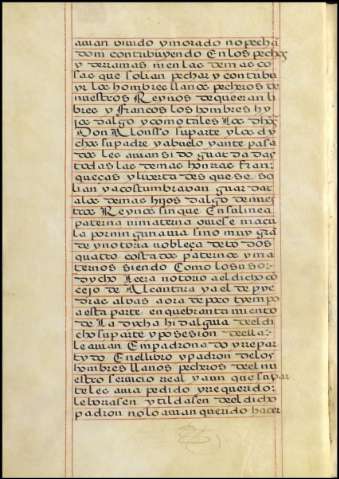 auian viuido y morado no pecha
do ni contribuyendo En los pechos
y derramas ni en las demas co
sas que solian pechar y contribu
yr los hombres llanos pecheros de
nuestros Reynos de que eran li
bres y francos los hombres Hy
jos dalgo y como tales Los dhos
Don Alonsso su parte y los dy
chos su padre y abuelo y ante pasa
dos les auian sido guardadas
todas las demas honrras fran
queças y libertades que se so
lian y acostumbravan guardar
a los demas hijos dalgo de nues
tros Reynos sin que En su linea
paterna ni materna ouiese macu
la por ninguna via sino muy gra
de y notoria nobleça de todos
quatro costados paternos y ma
ternos siendo Como lo suso
dycho Lera notorio al dicho co
cejo de Alcantara y al de pye
dras albas aora de poco tyempo
a esta parte en quebrantamiento
de La dycha hidalguia del di
cho su parte y posesion de ella
le auian Empadronado y rrepar
tydo En el libro y padron de los
hombres llanos pecheros del nu
estro serui cio real y aun que su par
te les auia pedido y rrequerido
le borasen y tildasen del dicho
padron no lo auian querido hacer